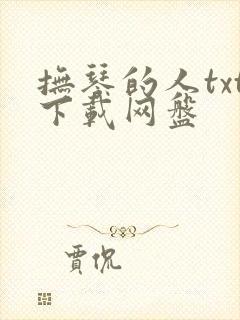 撫琴的人txt
下載网盤
賈侃